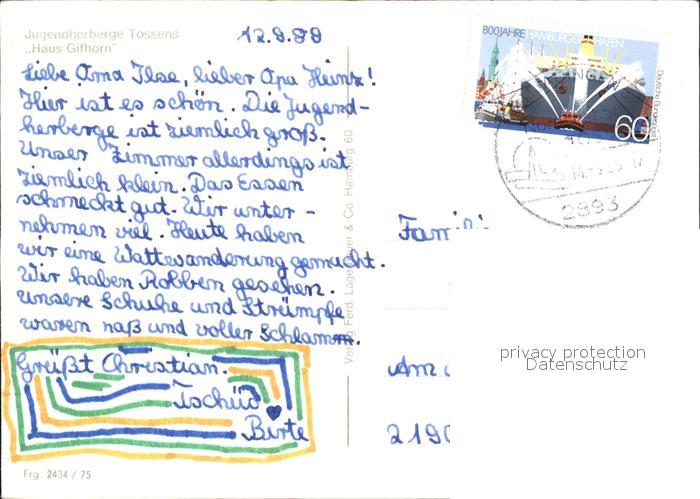 Jugendherberge Tossens
„Haus Gifhorn"
12.9.89
Liebe Oma Ilse, lieber Opa Heinz!
Hier ist es schön. Die Jugend-
herberge ist ziemlich groß.
Unser Zimmer allerdings ist
ziemlich klein. Das Essen
schmeckt gut. Wir unter-
nehmen viel. Heute haben
wir eine Wattwanderung gemacht.
Wir haben Robben gesehen.
Unsere Schuhe und Strümpfe
waren naß und voller Schlamm.
Grüßt Christian.
Tschüß
Birte
Frg. 2434 / 75
Verlag Ferd. & Co. Hamburg 60
800 JAHRE HAMBURGER HAFEN
Deutsche Bundespost
60
2893
Am
privacy protection
Datenschutz